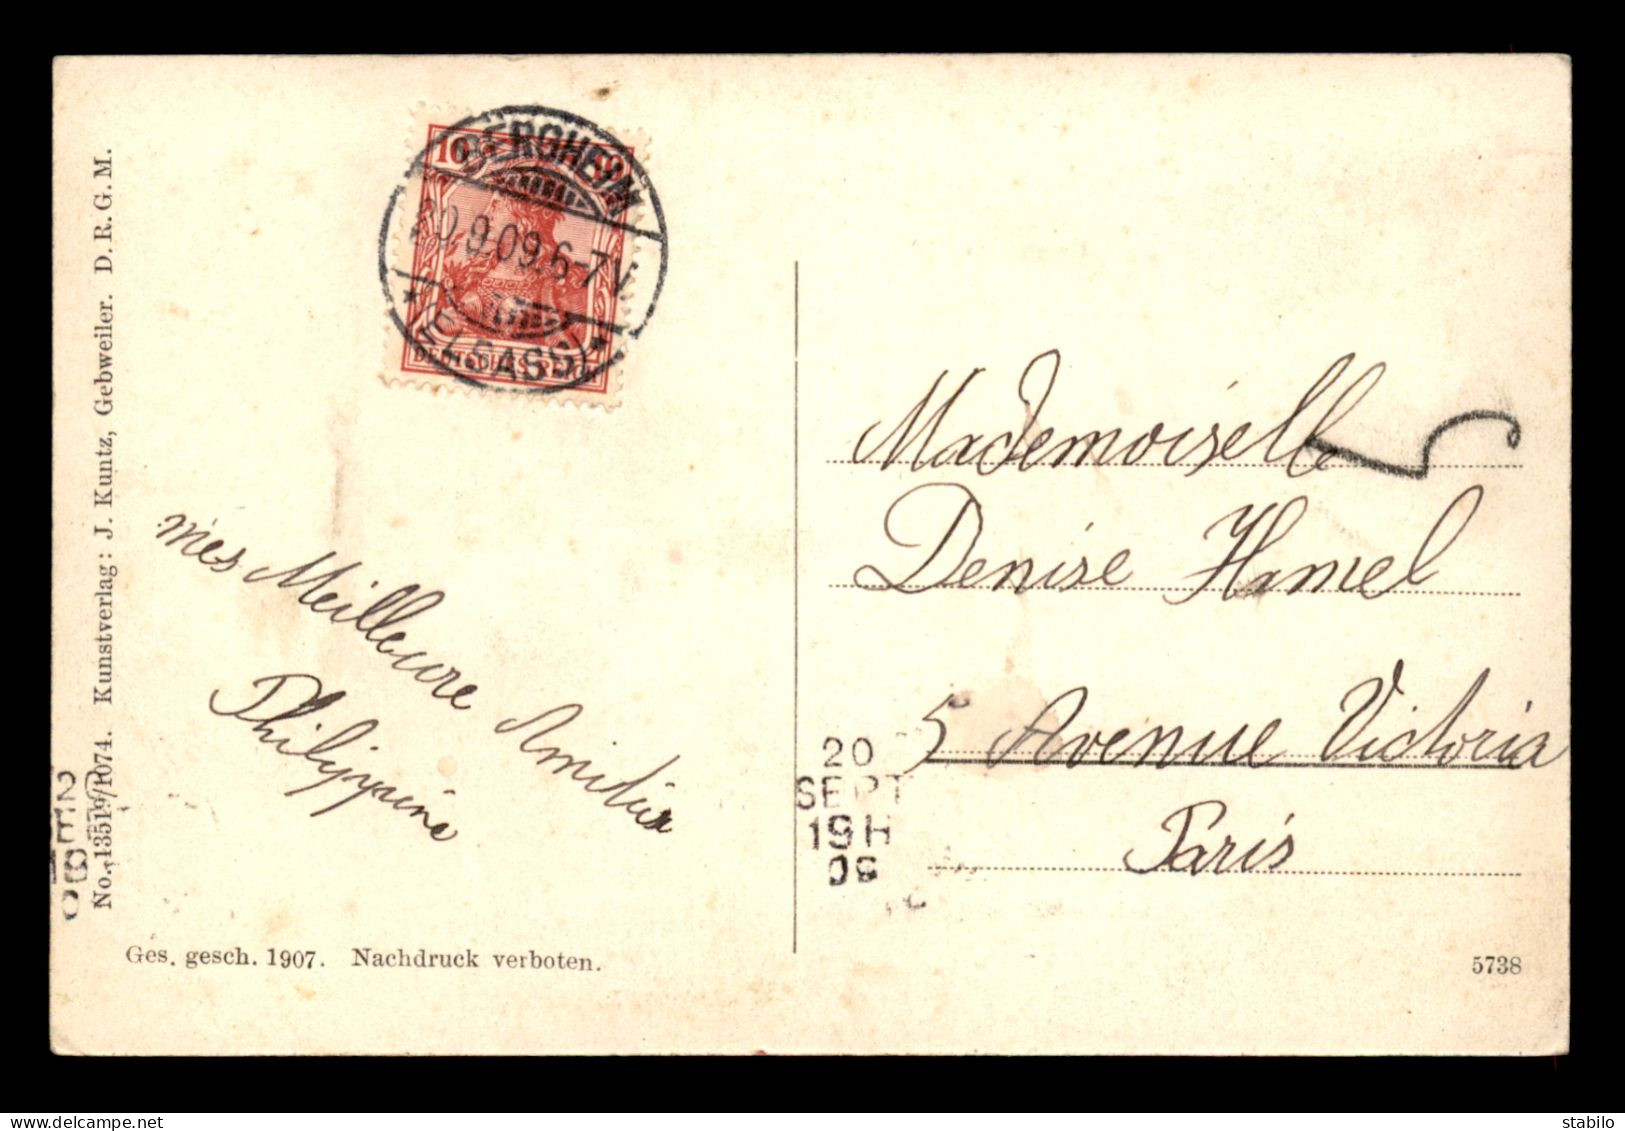 No. 13519/1074. Kunstverlag: J. Kuntz, Gebweiler. D. R. G. M.
10
BERGHEIM
20.9.09.6-7V.
* (ELSASS) *
DEUTSCHES REICH
mes Meilleure Amitiés
Philippine
Mademoiselle
Denise Hamel
5 Avenue Victoria
Paris
20
SEPT
19H
09
Ges. gesch. 1907. Nachdruck verboten.
5738
stabilo
www.delcampe.net